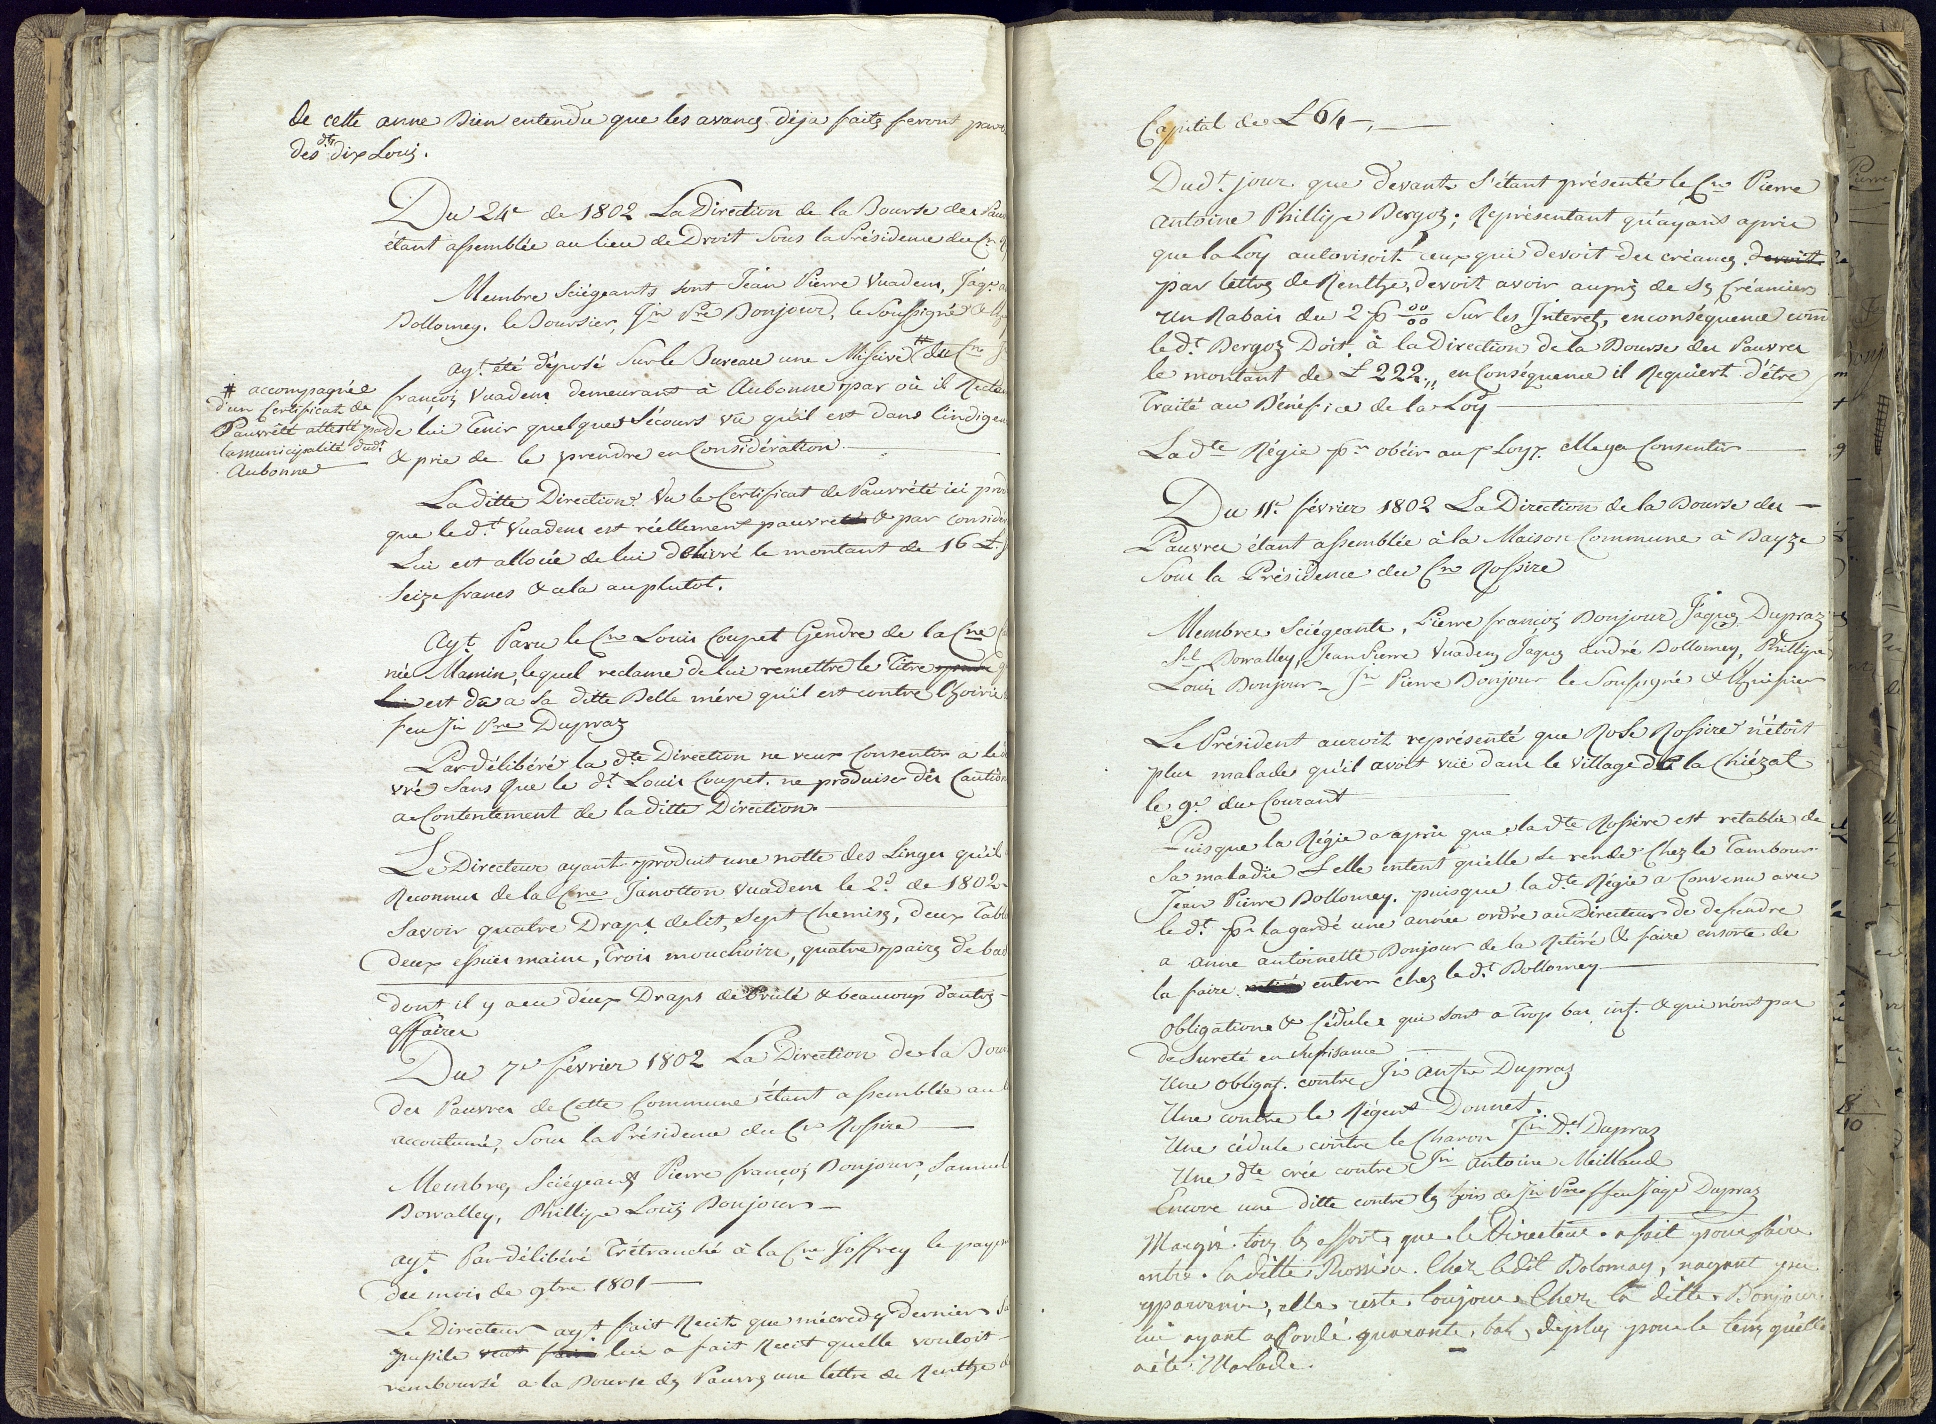 de cette anne Bien entendu que les avancs déja faits seront
des dts dix Louis.
Du 24e de 1802 La Direction de la Bourse des
étant assemblée au lieu de Droit Sous la Présidence du Cn
Membre Sciégeants sont Jean Pierre Vuadens,
Dollomey, le Boursier, Jn Pre Bonjour, le Soussigné &
ayt été déposé sur le Bureau une Missive # du Cn
# accompagnée
d'un Certificat de
Pauvrété attesté par
la municipalité dudt
Aubonne
françois Vuadens demeurant à Aubonne par où il
de lui Tenir quelques Sécours vu qu'il est dans l'indigen
& prie de le prendre en Considération
La ditte Direction Vu le Certificat de Pauvrété ici
que le dt Vuadens est réellement pauvre & par
Lui est allouée de lui délivré le montant de 16 £
Seize francs & cela au plutot.
Ayt Paru le Cn Louis Coupet Gendre de la Cne
née Mamin, lequel reclame de lui remettre le Titre
est du a sa ditte Belle mére qu'il est contre l'hoirie
feu Jn Pre Dupraz
Par délibéré la dte Direction ne veux Consentir a le
vré Sans que le dt Louis Coupet ne produise des Caution
a Contentement de la ditte Direction
Le Directeur ayant produit une notte des Linges qu'il
Reconnus de la Cne Janotton Vuadens le 2d de 1802
Savoir quatre Draps de lit, Sept Chemises, deux
deux essuies mains, Trois mouchoirs, quatre paires de bas
dont il y a eu deux Draps de Brulé & beaucoup d'autres
affaires
Du 7e février 1802 La Direction de la
des Pauvres de Cette Commune étant assemblée au
accoutumé, Sous la Présidence du Cn Rossire
Membres Sciégeants Pierre françois Bonjour, Samuel
Dowalley, Phillipe Louis Bonjour
ayt Par délibéré Trétranché à la Cne Joffrey le
du mois de 9bre 1801
Le Directeur ayt fait Recit que mécredy Dernier
pupile lui a fait Recit quelle vouloit
remboursé a la Bourse des Pauvres une lettre de Renthe
Capital de £ 64
Dudt jour que devant S'étant présenté le Cn Pierre
Antoine Phillipe Bergoz; Représentant qu'ayant apris
que la Loy autorisoit ceux qui devoit des créances devoit
par lettres de Renthe, devoit avoir auprès de Ses Créanciers
un Rabais du 2 p % Sur les Interets, en conséquence
le dt Bergoz Doit à la Direction de la Bourse des Pauvres
le montant de £ 222 en Conséquence il Requiert d'être
Traité au Bénéfice de la Loy
La dte Régie pr obéir aux Loyx elle ya Consentir
Du 11e février 1802 La Direction de la Bourse des
Pauvres étant assemblée à la Maison Commune à Bayze
Sous la Présidence du Cn Rossire
Membres Sciégeants, Pierre françois Bonjour Jaques Dupraz
Sel Dowalley, Jean Pierre Vuadens Jaques andré Dollomey, Phillipe
Louis Bonjour Jn Pierre Bonjour le Soussigné &
Le Président auroit représenté que Rose Rossire n'étoit
plus malade qu'il avoit vue dans le village de la Chiézat
le 9e du Courant
Puisque la Régie a apris que la dte Rossire est retablie de
Sa maladie elle entent qu'elle se rende Chez le Tambour
Jean Pierre Dollomey, puisque la dte Régie a Convenu avec
le dt pr la gardé une année ordre au Directeur de defendre
a anne antoinette Bonjour de la Retiré & faire ensorte de
la faire entrer chez le dt Dollomey
Obligations & Cédules qui sont a Trop bas int. & qui n'ont pas
de Sureté en suffisance
Une obligat. contre Jn Dupraz
Une contre le Régent Donnet
Une cédule contre le Charon Jn Dl Dupraz
Une dte crée contre Jn Antoine Meillaud
Encore une ditte contre les hoirs de Jn Pre ffeu Jaqs Dupraz
Malgré tous les efforts que le Directeur a fait pour faire
entre la ditte Rossier Chez ledit Dolomay, nayant peu
y parvenir, elle reste toujour Chez la ditte Bonjour
lui ayant acordé quarante batz deplus pour le tems quelle
a été Malade.